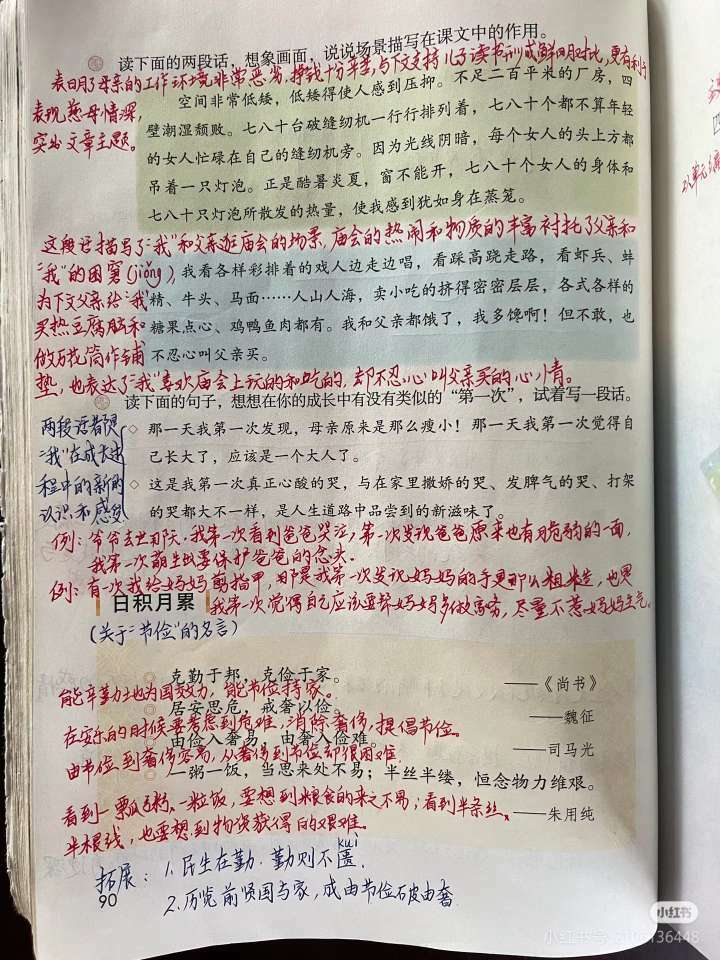 读下面的两段话，想象画面，说说场景描写在课文中的作用。
表明了母亲的工作环境非常恶劣，挣钱十分辛苦，与下文支持儿子读书形成鲜明对比，更有利于
表现慈母情深，
突出文章主题。
不足二百平米的厂房，四
空间非常低矮，低矮得使人感到压抑。
壁潮湿颓败。七八十台破缝纫机一行行排列着，七八十个都不算年轻
的女人忙碌在自己的缝纫机旁。因为光线阴暗，每个女人的头上方都
吊着一只灯泡。正是酷暑炎夏，窗不能开，七八十个女人的身体和
七八十只灯泡所散发的热量，使我感到犹如身在蒸笼。
这段话描写了“我”和父亲逛庙会的场景，庙会的热闹和物质的丰富衬托了父亲和
“我”的困窘(jiǒng)，
为下文父亲给“我”
买热豆腐脑和
做万花筒作铺
垫，也表达了“我”喜欢庙会上玩的和吃的，却不忍心叫父亲买的心情。
我看各样彩排着的戏人边走边唱，看踩高跷走路，看虾兵、蚌
精、牛头、马面……人山人海，卖小吃的挤得密密层层，各式各样的
糖果点心、鸡鸭鱼肉都有。我和父亲都饿了，我多馋啊！但不敢，也
不忍心叫父亲买。
读下面的句子，想想在你的成长中有没有类似的“第一次”，试着写一段话。
两段话都是
“我”在成长过
程中的新的
认识和感受
◇ 那一天我第一次发现，母亲原来是那么瘦小！那一天我第一次觉得自
己长大了，应该是一个大人了。
◇ 这是我第一次真正心酸的哭，与在家里撒娇的哭、发脾气的哭、打架
的哭都大不一样，是人生道路中品尝到的新滋味了。
例：爷爷去世那天，我第一次看到爸爸哭泣，第一次发现爸爸原来也有脆弱的一面，
我第一次萌生出要保护爸爸的念头。
例：有一次我给妈妈剪指甲，那是我第一次发现妈妈的手是那么粗糙，也是
我第一次觉得自己应该要帮妈妈多做家务，尽量不惹妈妈生气。
日积月累
(关于“节俭”的名言)
克勤于邦，克俭于家。 ——《尚书》
能辛勤地为国效力，能节俭持家。
居安思危，戒奢以俭。 ——魏征
在安乐的时候要考虑到危难，消除奢侈，提倡节俭。
由俭入奢易，由奢入俭难。 ——司马光
由节俭到奢侈容易，从奢侈到节俭却很困难
一粥一饭，当思来处不易；半丝半缕，恒念物力维艰。
——朱用纯
看到一瓢粥、一粒饭，要想到粮食的来之不易；看到半条丝、
半根线，也要想到物资获得的艰难。
拓展：1.民生在勤，勤则不匮(kuì)．
2.历览前贤国与家，成由节俭破由奢．
90
小红书